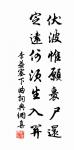 伏波惟願裹尸還
定遠何須生入關
李益塞下曲詞典網書